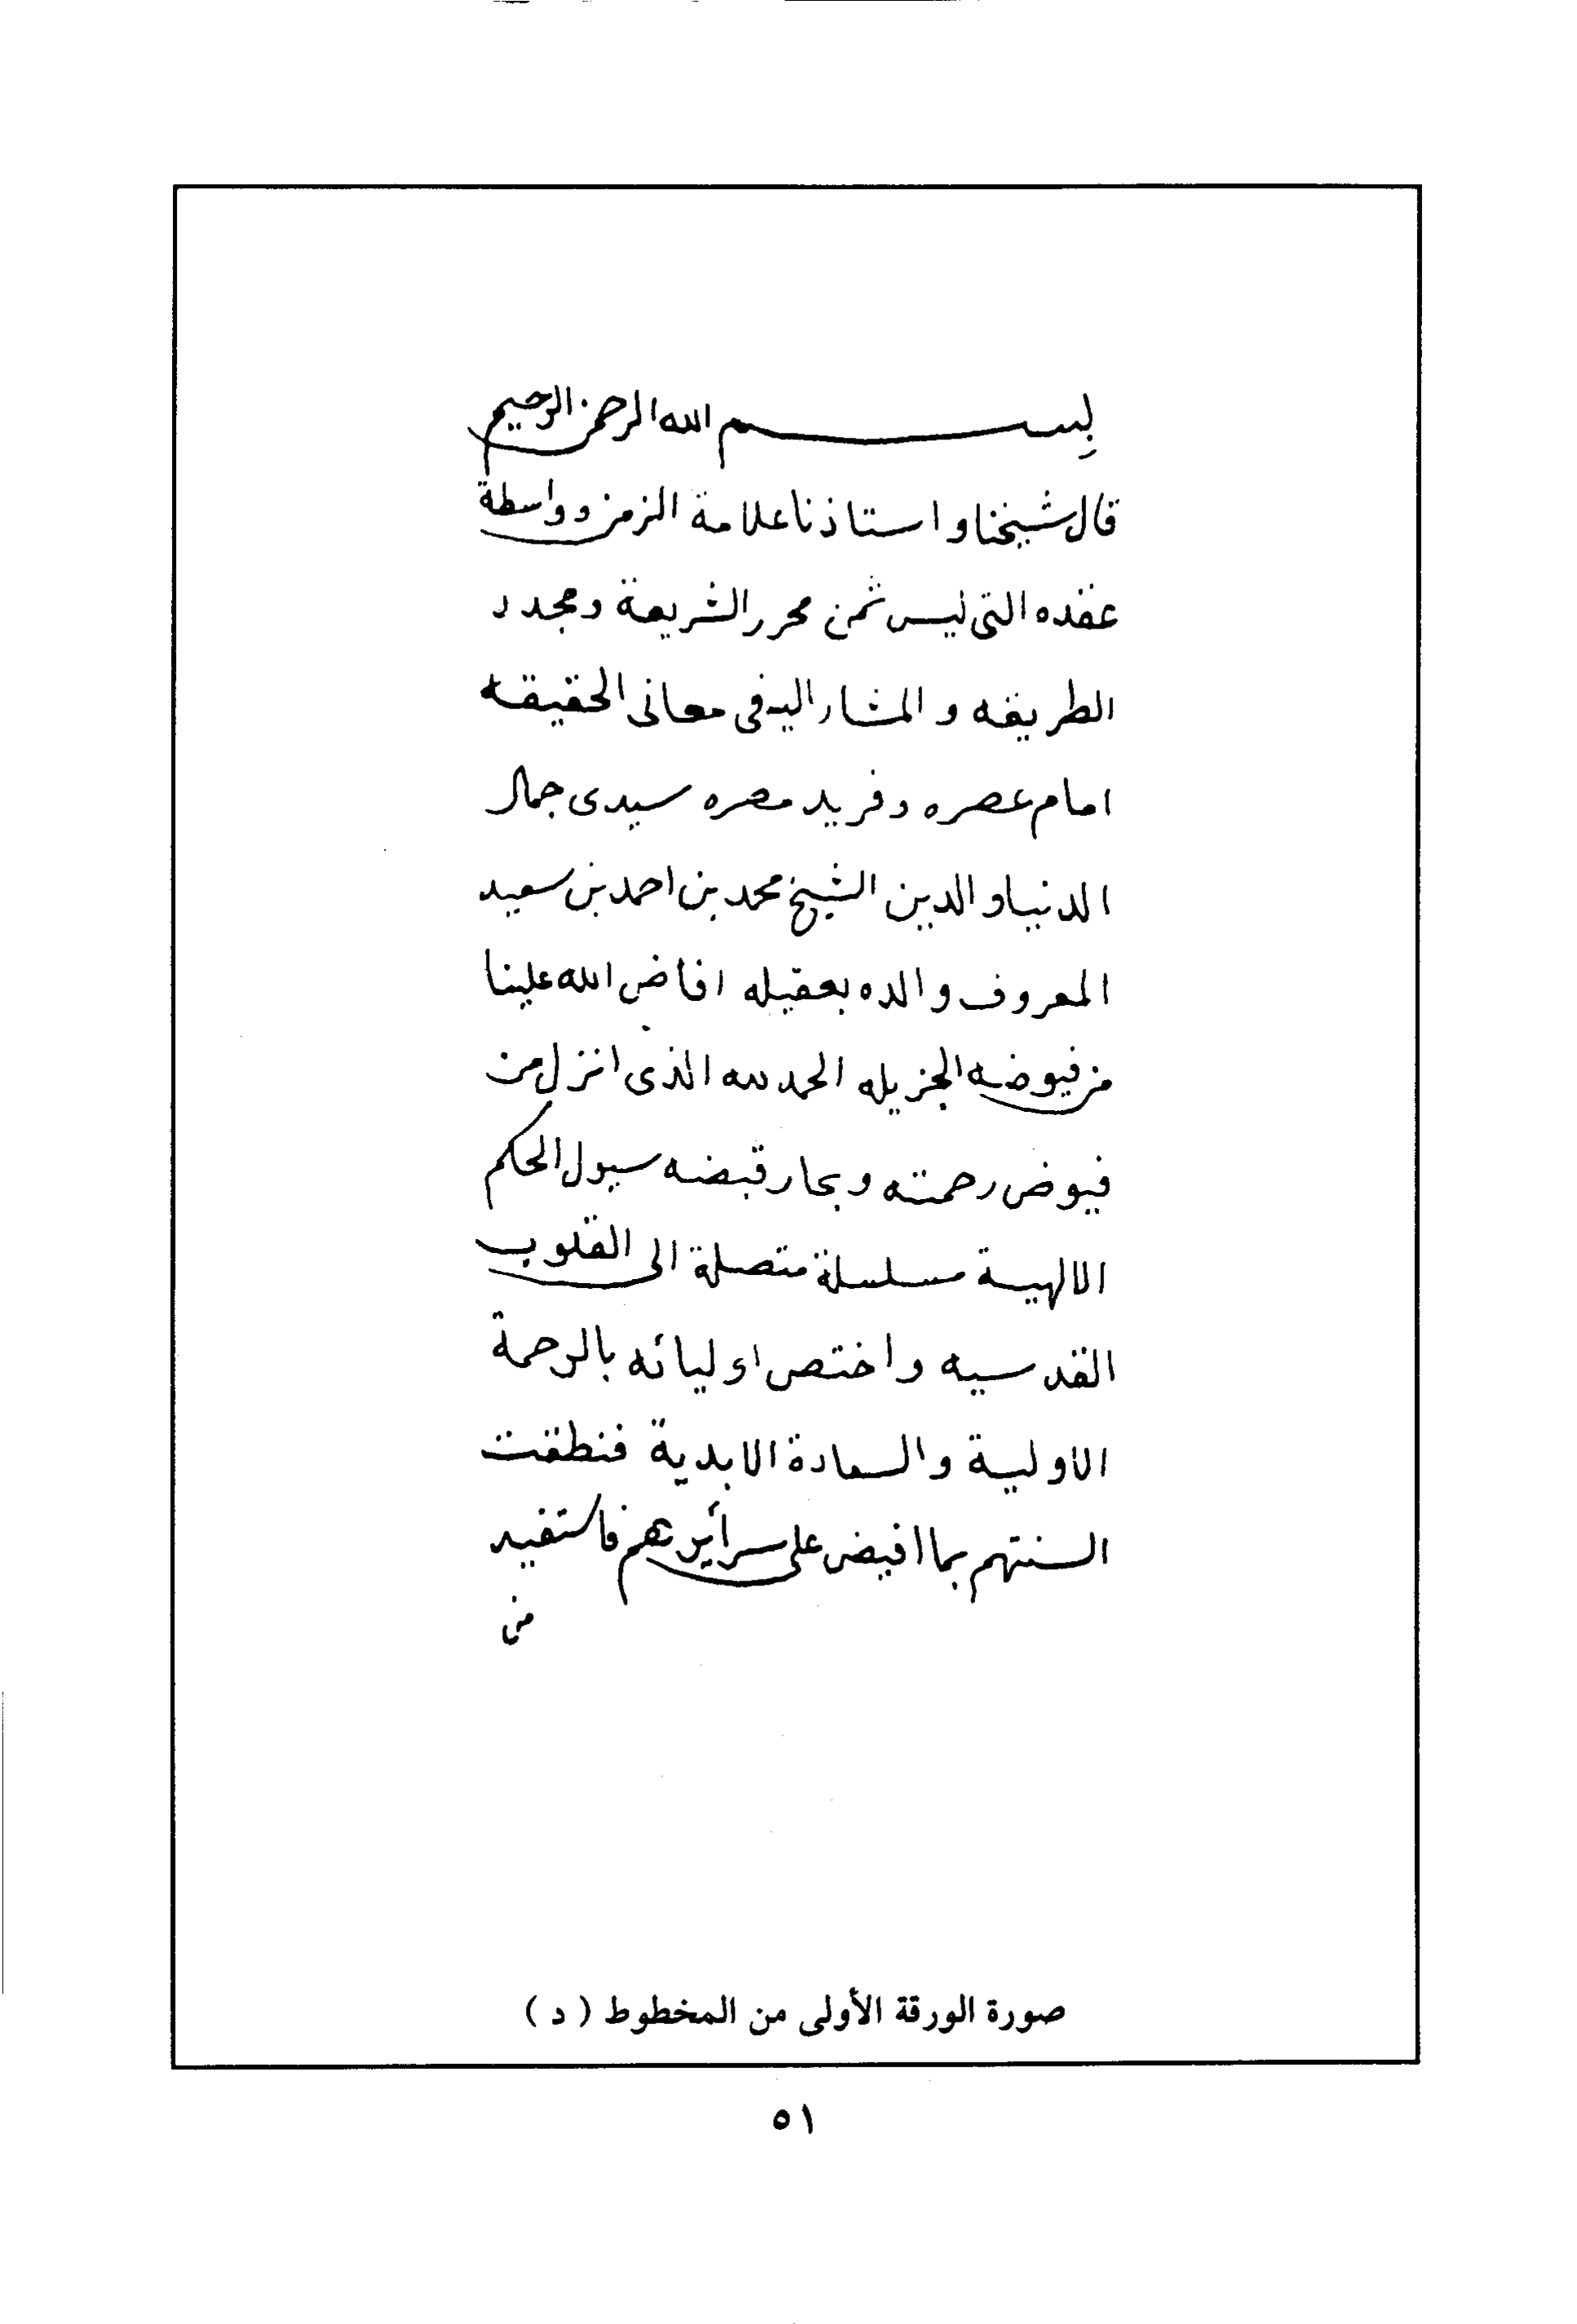 بسم الله الرحمن الرحيم
قال شيخنا و استاذنا علامة الزمن و واسطة
عقده التى ليس ثمن محرر الشريعة ومجدد
الطريقه و المشار اليه فى معانى الحقيقه
امام عصره وفريد مصره سيدى جمال
الدنيا و الدين الشيخ محمد بن احمد بن سعيد
المعروف والده بعقيله افاض الله علينا
من فيوضه الجزيله الحمد لله الذى انزل من
فيوض رحمته وبحار قبضه سيول الحكم
الالهية مسلسلة متصلة الى القلوب
القدسيه واختص اوليائه بالرحمة
الاولية والسعادة الابدية فنطقت
السنتهم بما افيض على سرائرهم فاستفيد
من
صورة الورقة الأولى من المخطوط ( د )
٥١